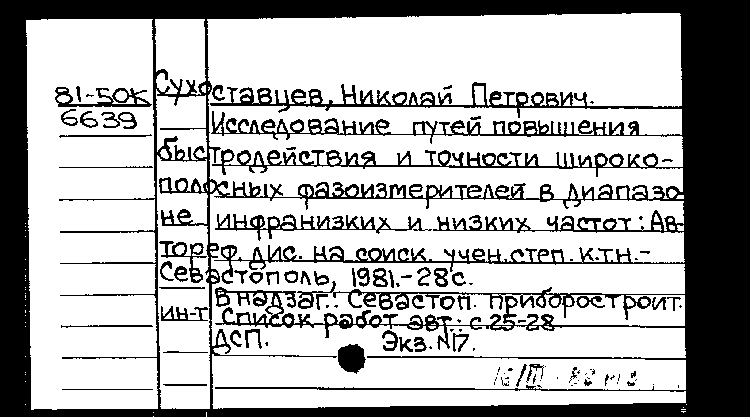 81-50К Сухоставцев, Николай Петрович.
6639 Исследование путей повышения
быстродействия и точности широко-
полосных фазоизмерителей в диапазо-
не инфранизких и низких частот: Ав-
тореф. дис. на соиск. учен. степ. к.т.н.-
Севастополь, 1981.-28 с.
В надзаг.: Севастоп. приборостроит.
ин-т Список работ авт.: с.25-28
ДСП. Экз. №17.
16/III